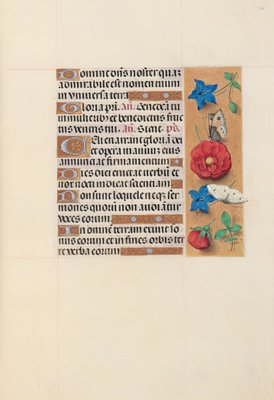 Domine dns noster quaz
admirabile est nomen tuum
in vniuersa terra
Gloria pri. Añ. Benedicta tu
in mulieribus et benedictus fruc
tus ventris tui. Añ. Sicut. ps.
Celi enarrant gloria dei
et opera manuum eius
annunciat firmamentum
Dies diei eructat verbū et
nox nocti indicat scientiam
Non sunt loquele neque ser
mones quoru non audiantur
voces eorum
In omnem terram exiuit so
nus eorum et in fines orbis ter
re verba eorum